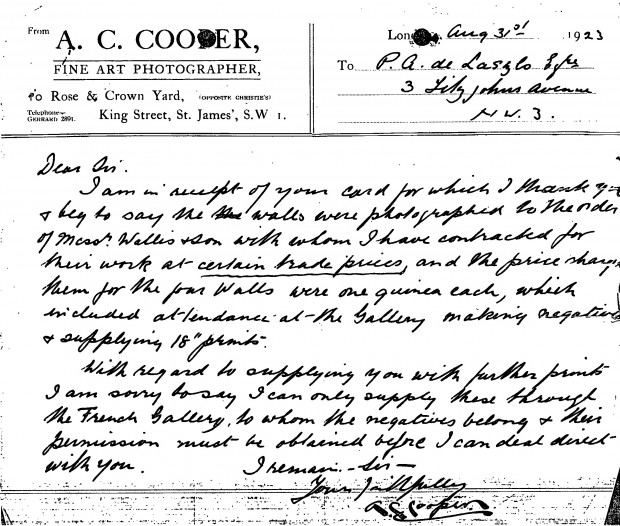 From A. C. COOPER,
FINE ART PHOTOGRAPHER,
Rose & Crown Yard, (OPPOSITE CHRISTIE'S)
Telephone—
GERRARD 2891.
King Street, St. James', S.W 1.
Aug 31st 1923
To P. A. de Laszlo Esqre
3 Fitzjohns Avenue
N.W. 3.
Dear Sir.
I am in receipt of your card for which I thank
& beg to say the walls were photographed to the order
of Messrs Wallis & Son with whom I have contracted for
their work at certain trade prices, and the price
them for the four Walls were one guinea each, which
included attendance at the Gallery making negatives
& supplying 18" prints.
With regard to supplying you with further prints
I am sorry to say I can only supply these through
the French Gallery, to whom the negatives belong & their
permission must be obtained before I can deal direct
with you. I remain - Sir -
Yours faithfully
Cooper